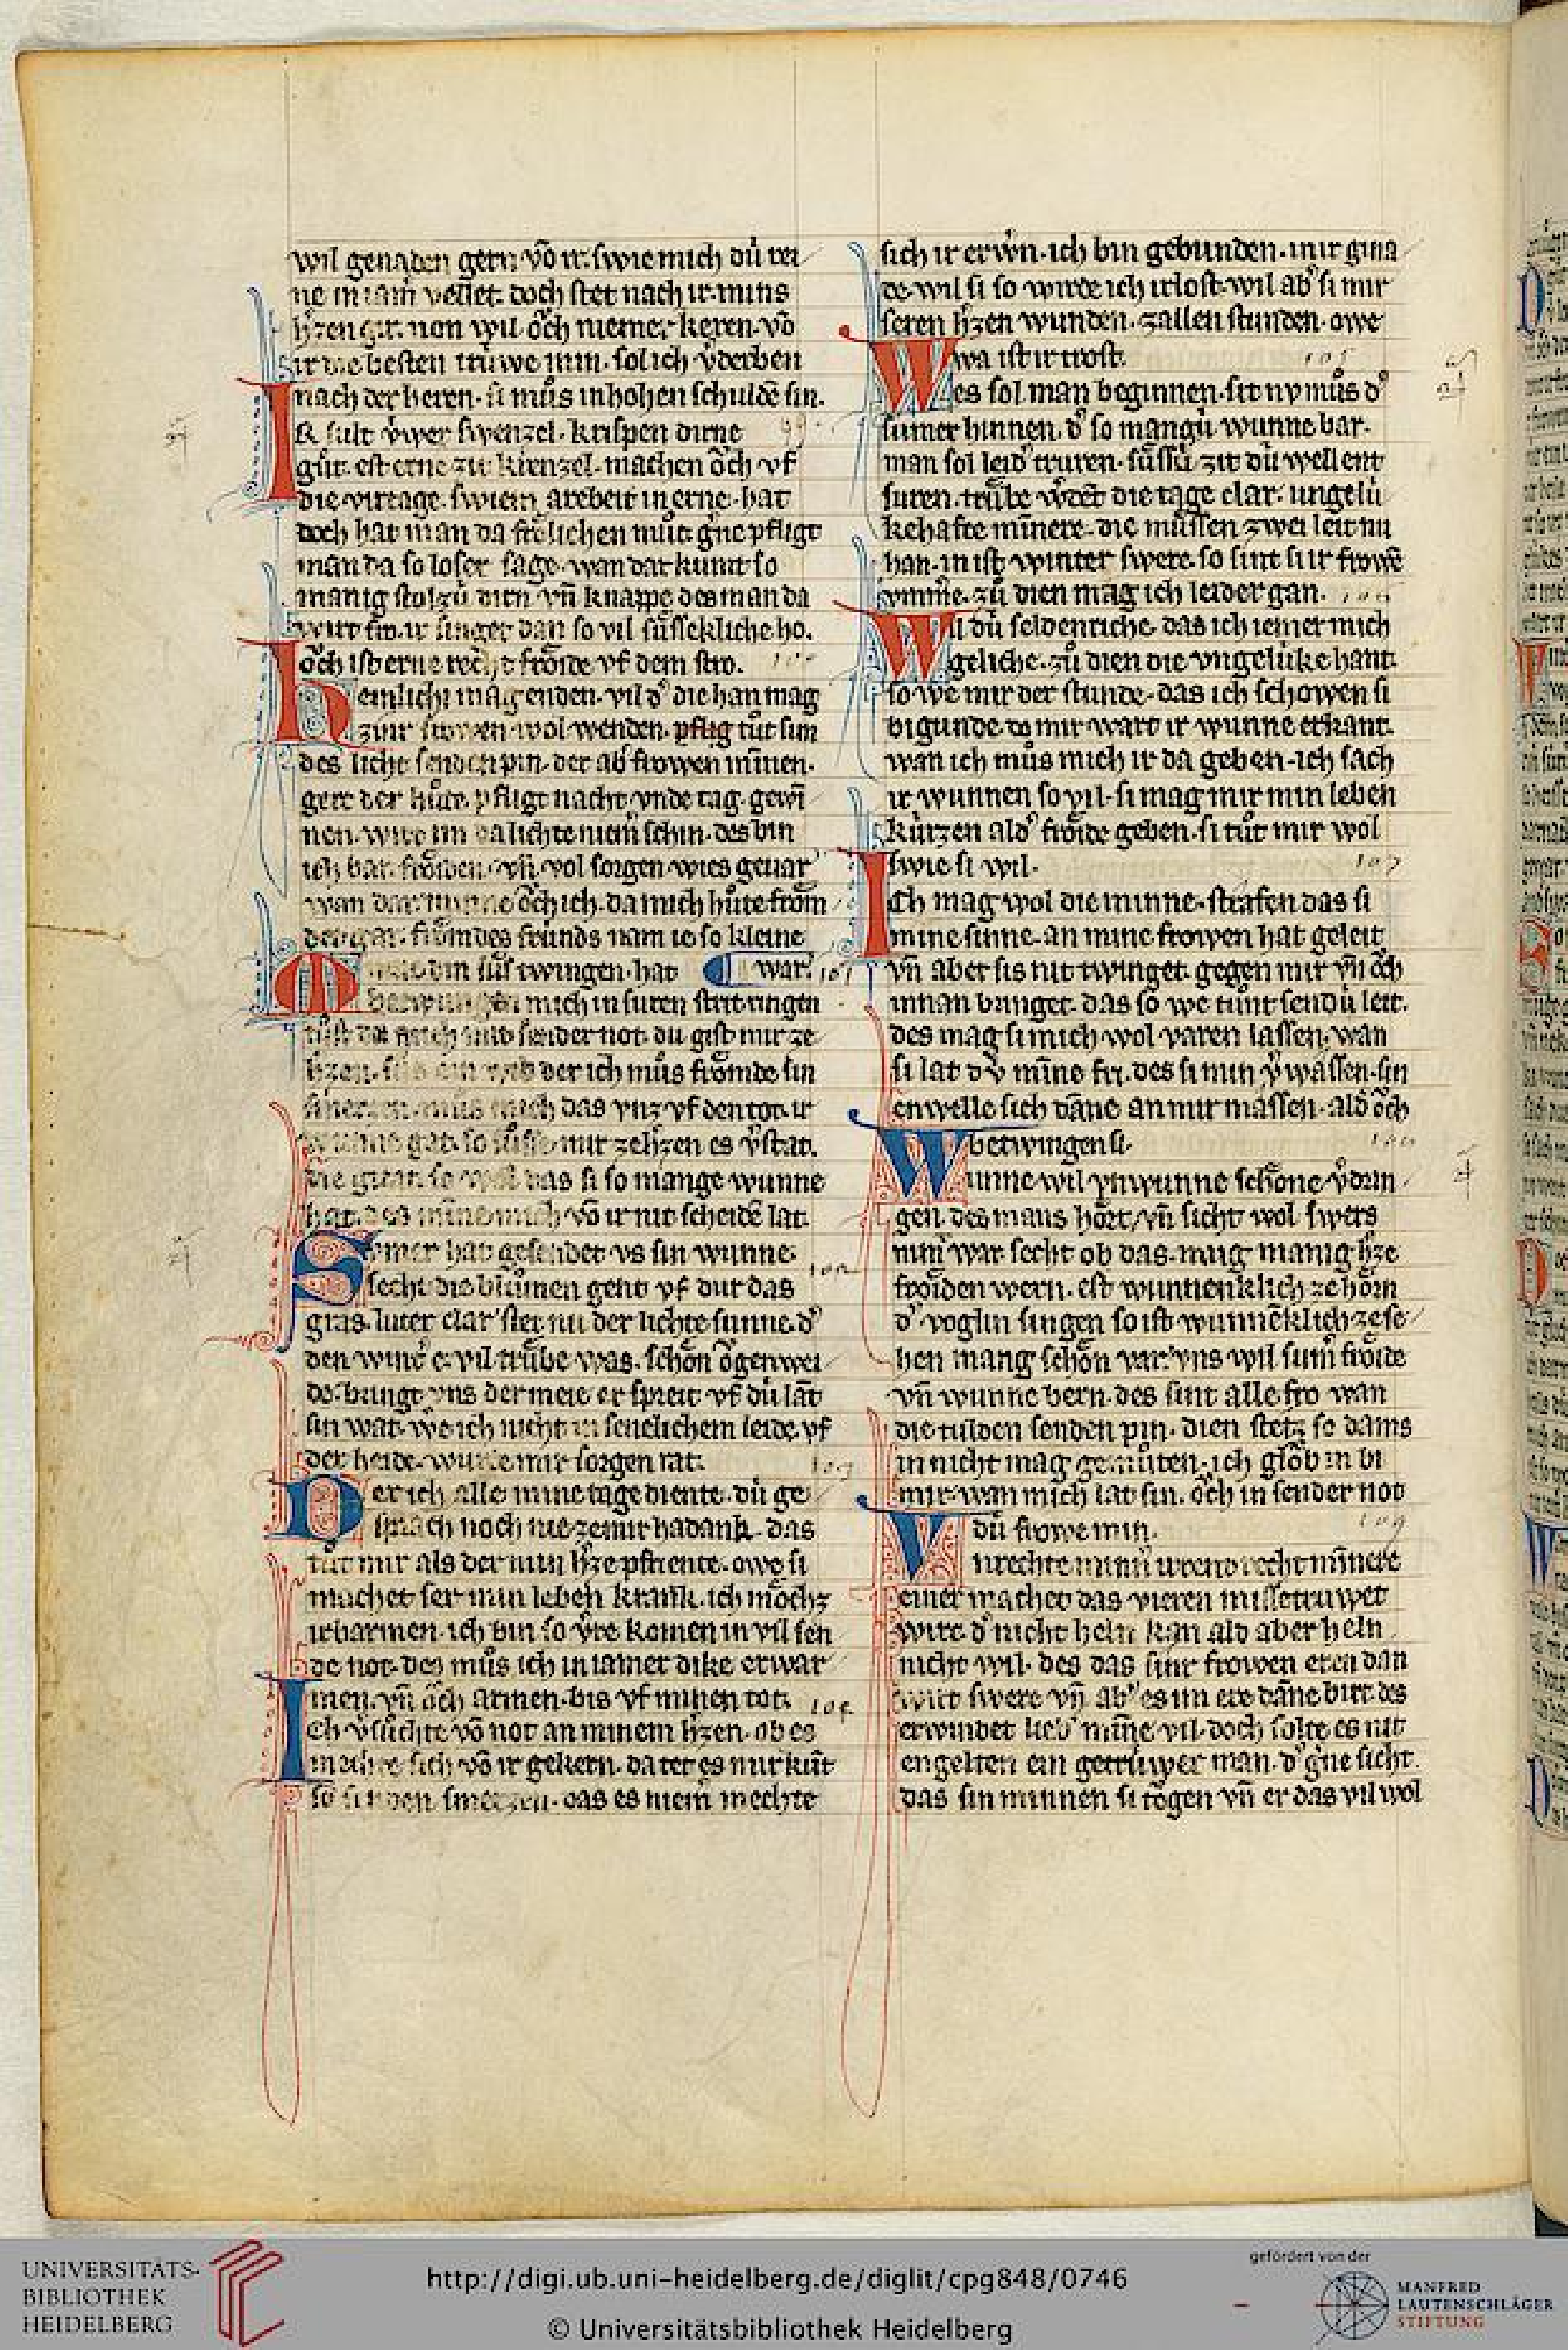 wil genaden gern vō ir. swie mich dú rei
ne in iam̄ vellet. doch stet nach ir. mins
h̾zen gir. non wil. ŏch niemer keren. vō
ir die besten trúwe min. sol ich v̾derben
nach der heren. si můs in hohen schuldē sin.
R sult swenzel. krispen dirne 99
gůt. est erne zit krenzel. machen ŏch vf
die virtage. swiem arebeit in erne. hat
doch hat man da frŏlichen můt. g̾ne pfligt
man da so loser sage. wan dar kumt so
manig stolzú dirn vn̄ knappe des man da
wirt fro. ir singet dan so vil sússekliche ho.
ŏch ist erne recht frŏide vf dem stro. 100
emlicht mag enden. vil d̾ die han mag
zůir frowen wol wenden. pflig tůt sim
des licht senden pin. der ab̾ frowen minnen.
gert der hůte. pfligt nacht vnde tag. gewi
nen. wirt im da lichte niem̄ schin. des bin
ich bar. frŏiden. vn̄. vol sorgen wies gevar
wan dar minne ŏch ich. da mich hůte frŏm
det gar. frŏmdes frúnds nam ie so kleine
din sus twingen. hat war. 101
betwungen mich in suren strit ringen
tůst du mich mit sender not. du gist mir ze
h̾zen. ein wib der ich můs frŏmde sin
smerzen. můs mich das vnz vf den tot. ir
minne gab. so sússe mir ze h̾zen es v̾stat.
die git so das si so mange wunne
hat. des minne mich vō ir nit scheidē lat.
vmer hat gesendet vs sin wunne.
secht die blůmen gent vf dur das 102
gras. luter clar stet nu der lichte sunne. d̾
den wint̾ e. vil trúbe was. schŏn ŏgenwei
de. bringt vns der meie er spreit vf dú lāt
sin wat. we ich nicht in senelichem leide. vf
der heide. wurde mir sorgen rat. 103
er ich alle mine tage diente. dú ge
sprach noch nie ze mir hadank. das
tůt mir als der min h̾ze pfriente. owe si
machet ser min leben krank. ich mŏchz
irbarmen. ich bin so v̾re komen in vil sen
de not. des můs ich in iamer dike erwar
men. vn̄ ŏch armen. bis vf minen tot. 104
ch v̾sůchte vō not an minem h̾zen. ob es
mehte sich vō ir gekern. da tet es mir kūt
so senden smerzen. das es niem̄ mechte
sich ir erwn̄. ich bin gebunden. mir gina
de. wil si so wirde ich irlost. wil ab̾ si mir
seren h̾zen wunden. zallen stunden. owe
wa ist ir trost. 105
es sol man beginnen. sit nv můs d̾
sumer hinnen. d̾ so mangú wunne bar.
man sol leid̾ truren. sússú zit dú wellent
suren. trúbe w̾dēt die tage clar. ungelú
kehafte minnere. die mússen zwei leit nu
han. in ist winter swere. so sint si ir frowē
vmm̄e. zů dien mag ich leider gan. 106
il dú seldenriche. das ich iemer mich
geliche. zů dien die vngelúke hant.
so we mir der stunde. das ich schowen si
bigunde. do mir wart ir wunne erkant.
wan ich můs mich ir da geben. ich sach
ir wunnen so vil. si mag mir min leben
kúrzen ald̾ frŏide geben. si tůt mir wol
swie si wil. 107
Ch mag wol die minne. strafen das si
mine sinne. an mine frowen hat geleit
vn̄ aber sis nit twinget. gegen mir vn̄ ŏch
inan bringet. das so we tůnt sendú leit.
des mag si mich wol varen lassen. wan
si lat dv̄ minne fri. des si min v̾wassen. sin
enwelle sich dāne an mir massen. ald ŏch
betwingen si. 108
unne wil vnwunne schŏne v̾drin
gen. des mans hŏrt, vn̄ sicht wol swers
nim̄ war. secht ob das. mug manig h̾ze
frŏiden wern. est wunnenklich ze hŏrn
d̾ voglin singen so ist wunnēklich ze se
hen mang schŏn var. vns wil sum̄ frŏide
vn̄ wunne bern. des sint alle fro wan
die dulden senden pin. dien stetz so dams
in nicht mag gemůten. ich glŏb in bi
mir. wan mich lat sin. ŏch in sender not
dú frowe min. 109
nrechte minne wrend recht minnere
einer machet das vieren missetruwet
wirt. d̾ nicht heln kan ald aber heln
nicht wil. des das sinr frowen eren dan
wirt swere vn̄ ab̾ es im ere dāne birt. des
erwindet lieb̾ minne vil. doch solte es nit
engelten ein getrúwer man. d̾ g̾ne sicht.
das sin minnen si tŏgen vn̄ er das vil wol
UNIVERSITÄTS-
BIBLIOTHEK
HEIDELBERG
http://digi.ub.uni-heidelberg.de/diglit/cpg848/0746
© Universitätsbibliothek Heidelberg
gefördert von der
MANFRED
LAUTENSCHLÄGER
STIFTUNG